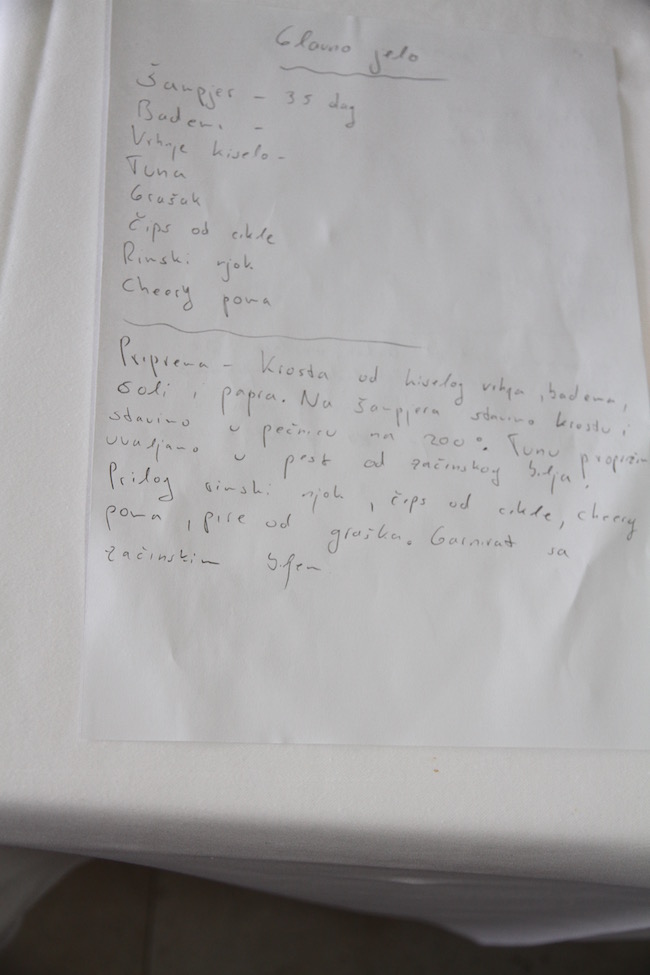 Glavno jelo
Šanpjer - 35 dag
Bademi -
Vrhnje kiselo -
Tuna
Grašak
Čips od cikle
Rimski njok
Cheery poma
Priprema - Krosta od kiselog vrhnja, badema,
soli i papra. Na šanpjera stavimo krostu i
stavimo u pećnicu na 200°. Tunu propržim
uvaljamo u pest od začinskog bilja!
Prilog rimski njok, čips od cikle, cheery
poma, pire od graška. Garnirat sa
začinskim biljem